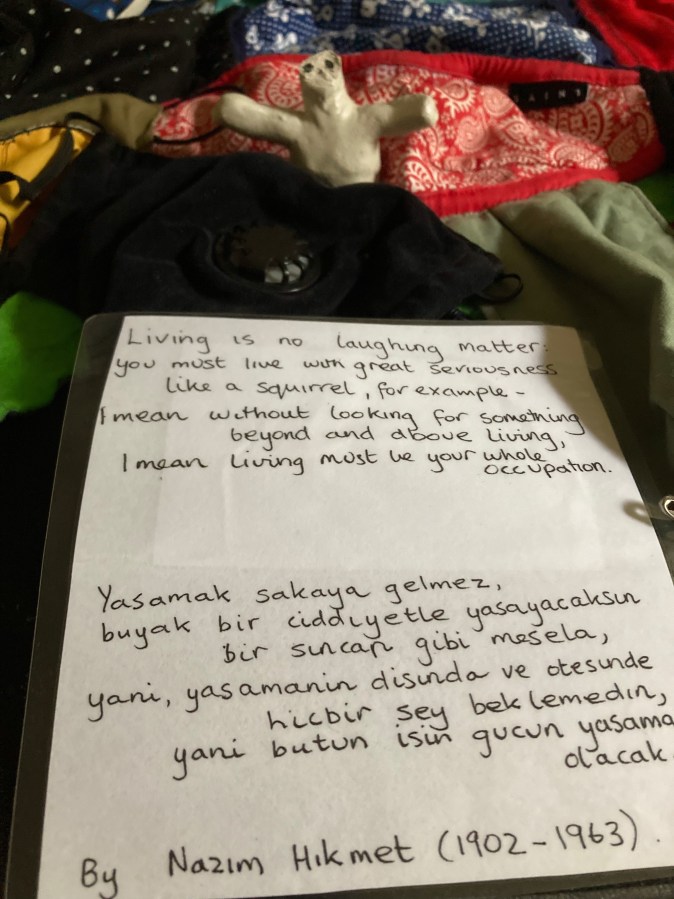 Living is no laughing matter:
you must live with great seriousness
like a squirrel, for example -
I mean without looking for something
beyond and above living,
I mean living must be your whole
occupation.
Yasamak sakaya gelmez,
buyak bir ciddiyetle yasayacaksın
bir sıncap gibi mesela,
yani, yasamanin disında ve otesunde
hicbir sey beklemedın,
yani butun isin gucun yasama
olacak.
By Nazım Hıkmet (1902-1963).